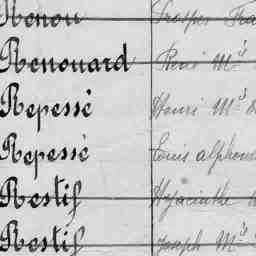 Renou Prosper
Renouard René M.
Repessé Henri M.
Repessé Louis alphon
Restif Hyacinthe
Restif Joseph M.